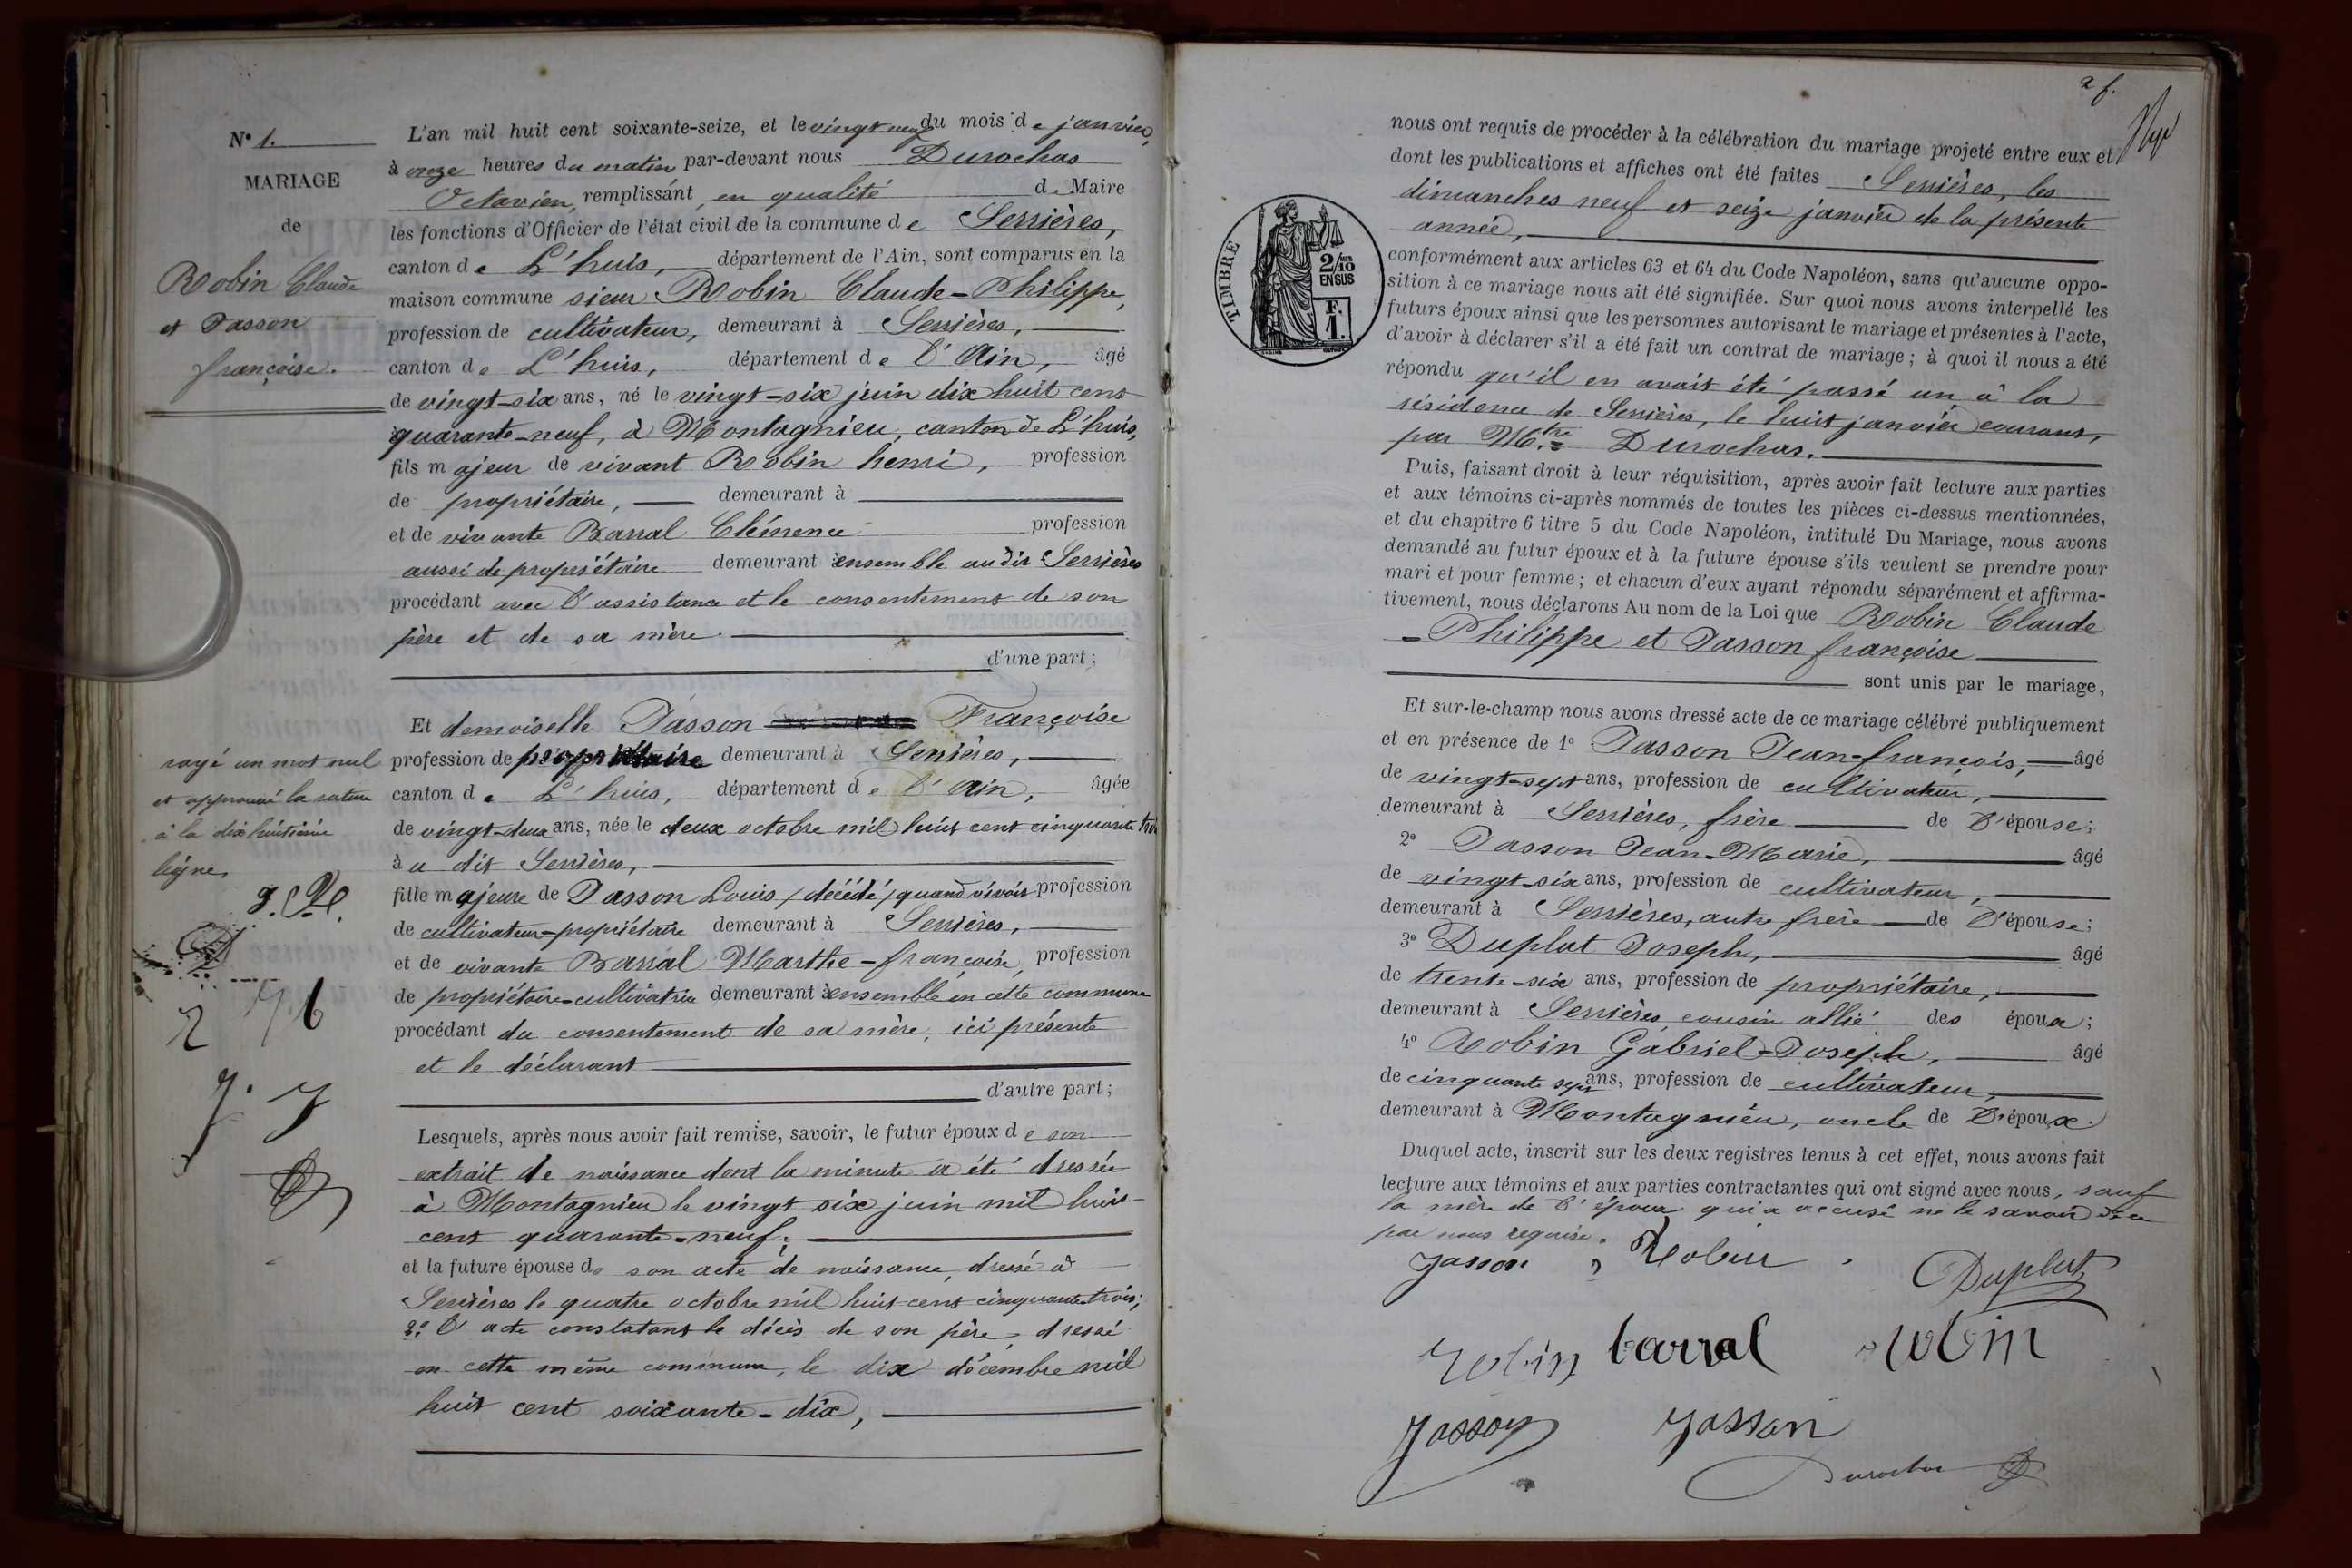 N° 1.
MARIAGE
de
Robin Claude
et Jasson
françoise.
rayé un mot nul
et approuvé la rature
à la dix huitième
ligne,
L'an mil huit cent soixante-seize, et le vingt neuf du mois de janvier,
à onze heures du matin par-devant nous Durochas
Octavien, remplissant, en qualité de Maire
les fonctions d'Officier de l'état civil de la commune de Serrières,
canton de L'huis, département de l'Ain, sont comparus en la
maison commune sieur Robin Claude-Philippe,
profession de cultivateur, demeurant à Serrières,
canton de L'huis, département de l'Ain, âgé
de vingt-six ans, né le vingt-six juin dix huit cent
quarante-neuf, à Montagnieu, canton de L'huis,
fils majeur de vivant Robin henri, profession
de propriétaire, demeurant à
et de vivante Barral Clémence profession
aussi de propriétaire demeurant ensemble au dit Serrières
procédant avec l'assistance et le consentement de son
père et de sa mère.
d'une part;
Et demoiselle Jasson Françoise
profession de propriétaire demeurant à Serrières,
canton de L'huis, département de l'Ain, âgée
de vingt-deux ans, née le deux octobre mil huit cent cinquante trois
àu dit Serrières,
fille majeure de Jasson Louis, (décédé) quand vivait profession
de cultivateur-propriétaire demeurant à Serrières,
et de vivante Barral Marthe-françoise, profession
de propriétaire-cultivatrice demeurant ensemble en cette commune
procédant du consentement de sa mère, ici présente
et le déclarant
d'autre part;
Lesquels, après nous avoir fait remise, savoir, le futur époux de son
extrait de naissance dont la minute a été dressée
à Montagnieu le vingt six juin mil huit-
cent quarante-neuf.
et la future épouse de son acte de naissance, dressé à
Serrières le quatre octobre mil huit cent cinquante-trois;
2° l'acte constatant le décès de son père, dressé
en cette même commune, le dix décembre mil
huit cent soixante-dix,
2 f.
nous ont requis de procéder à la célébration du mariage projeté entre eux et
dont les publications et affiches ont été faites Serrières, les
dimanches neuf et seize janvier de la présente
année,
TIMBRE
2/10
EN SUS
F.
1.
conformément aux articles 63 et 64 du Code Napoléon, sans qu'aucune oppo-
sition à ce mariage nous ait été signifiée. Sur quoi nous avons interpellé les
futurs époux ainsi que les personnes autorisant le mariage et présentes à l'acte,
d'avoir à déclarer s'il a été fait un contrat de mariage; à quoi il nous a été
répondu qu'il en avait été passé un à la
résidence de Serrières, le huit janvier courant,
par Mtre Durochas.
Puis, faisant droit à leur réquisition, après avoir fait lecture aux parties
et aux témoins ci-après nommés de toutes les pièces ci-dessus mentionnées,
et du chapitre 6 titre 5 du Code Napoléon, intitulé Du Mariage, nous avons
demandé au futur époux et à la future épouse s'ils veulent se prendre pour
mari et pour femme; et chacun d'eux ayant répondu séparément et affirma-
tivement, nous déclarons Au nom de la Loi que Robin Claude
-Philippe et Jasson françoise
sont unis par le mariage,
Et sur-le-champ nous avons dressé acte de ce mariage célébré publiquement
et en présence de 1° Jasson Jean-françois, âgé
de vingt-sept ans, profession de cultivateur,
demeurant à Serrières, frère de l'épouse;
2° Jasson Jean-Marie, âgé
de vingt-six ans, profession de cultivateur,
demeurant à Serrières, autre frère de l'épouse;
3° Duplut Joseph, âgé
de trente-six ans, profession de propriétaire,
demeurant à Serrières, cousin allié des époux;
4° Robin Gabriel-Joseph, âgé
de cinquante sept ans, profession de cultivateur,
demeurant à Montagnieu, oncle de l'époux.
Duquel acte, inscrit sur les deux registres tenus à cet effet, nous avons fait
lecture aux témoins et aux parties contractantes qui ont signé avec nous, sauf
la mère de l'époux qui a accusé ne le savoir de ce
par nous requise.
Jasson Robin Duplut
Robin barral robin
Jasson Jasson
Durochas